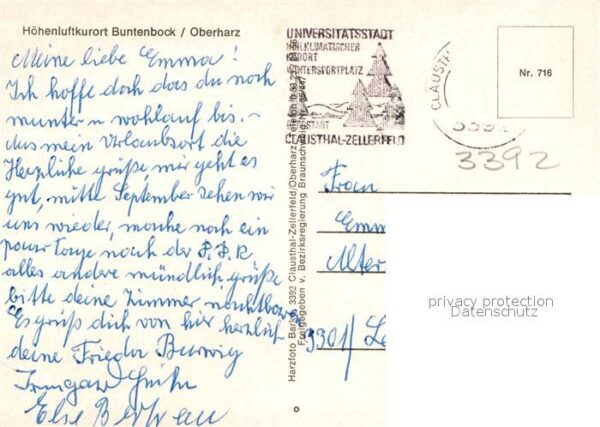 Höhenluftkurort Buntenbock / Oberharz
Meine liebe Emma!
Ich hoffe doch das du noch
munter u wohlauf bis. -
Aus mein Urlaubsort die
Herzliche grüße, mir geht es
gut, mitte September sehen wir
uns wieder, mache noch ein
paar Tage nach der
alles andere mündlich, grüße
bitte deine Zimmer nachtbarin
Es grüß dich von hier herzlich
deine Frieda
Irmgard
Else
Harzfoto Barke, 3392 Clausthal-Zellerfeld/Oberharz, Telefon
Freigegeben v. Bezirksregierung Braunschweig, Nr.
UNIVERSITÄTSSTADT
HEILKLIMATISCHER
KURORT
WINTERSPORTPLATZ
CLAUSTHAL-ZELLERFELD
CLAUSTH
Nr. 716
3392
Frau
Emm
Alter
3301/ Le
privacy protection
Datenschutz